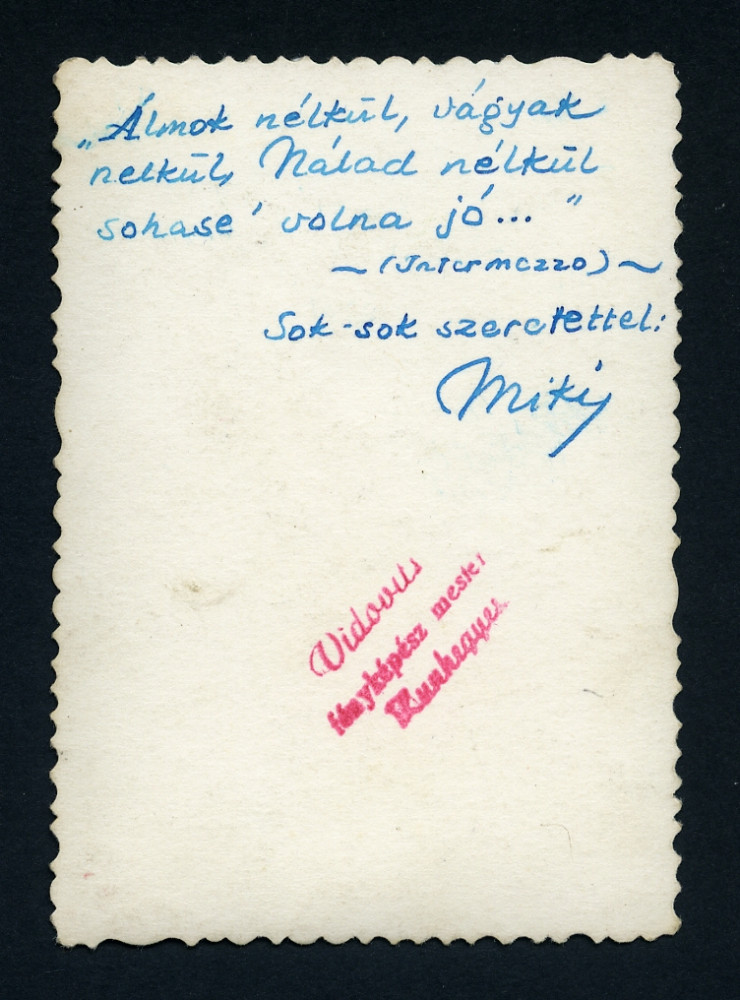 „Álmok nélkül, vágyak
nelkül, Nálad nélkül
sohase' volna jó... "
~ (Intermezzo) ~
Sok-sok szeretettel:
Miki
Vidovics
fényképész mester
Kunhegyes